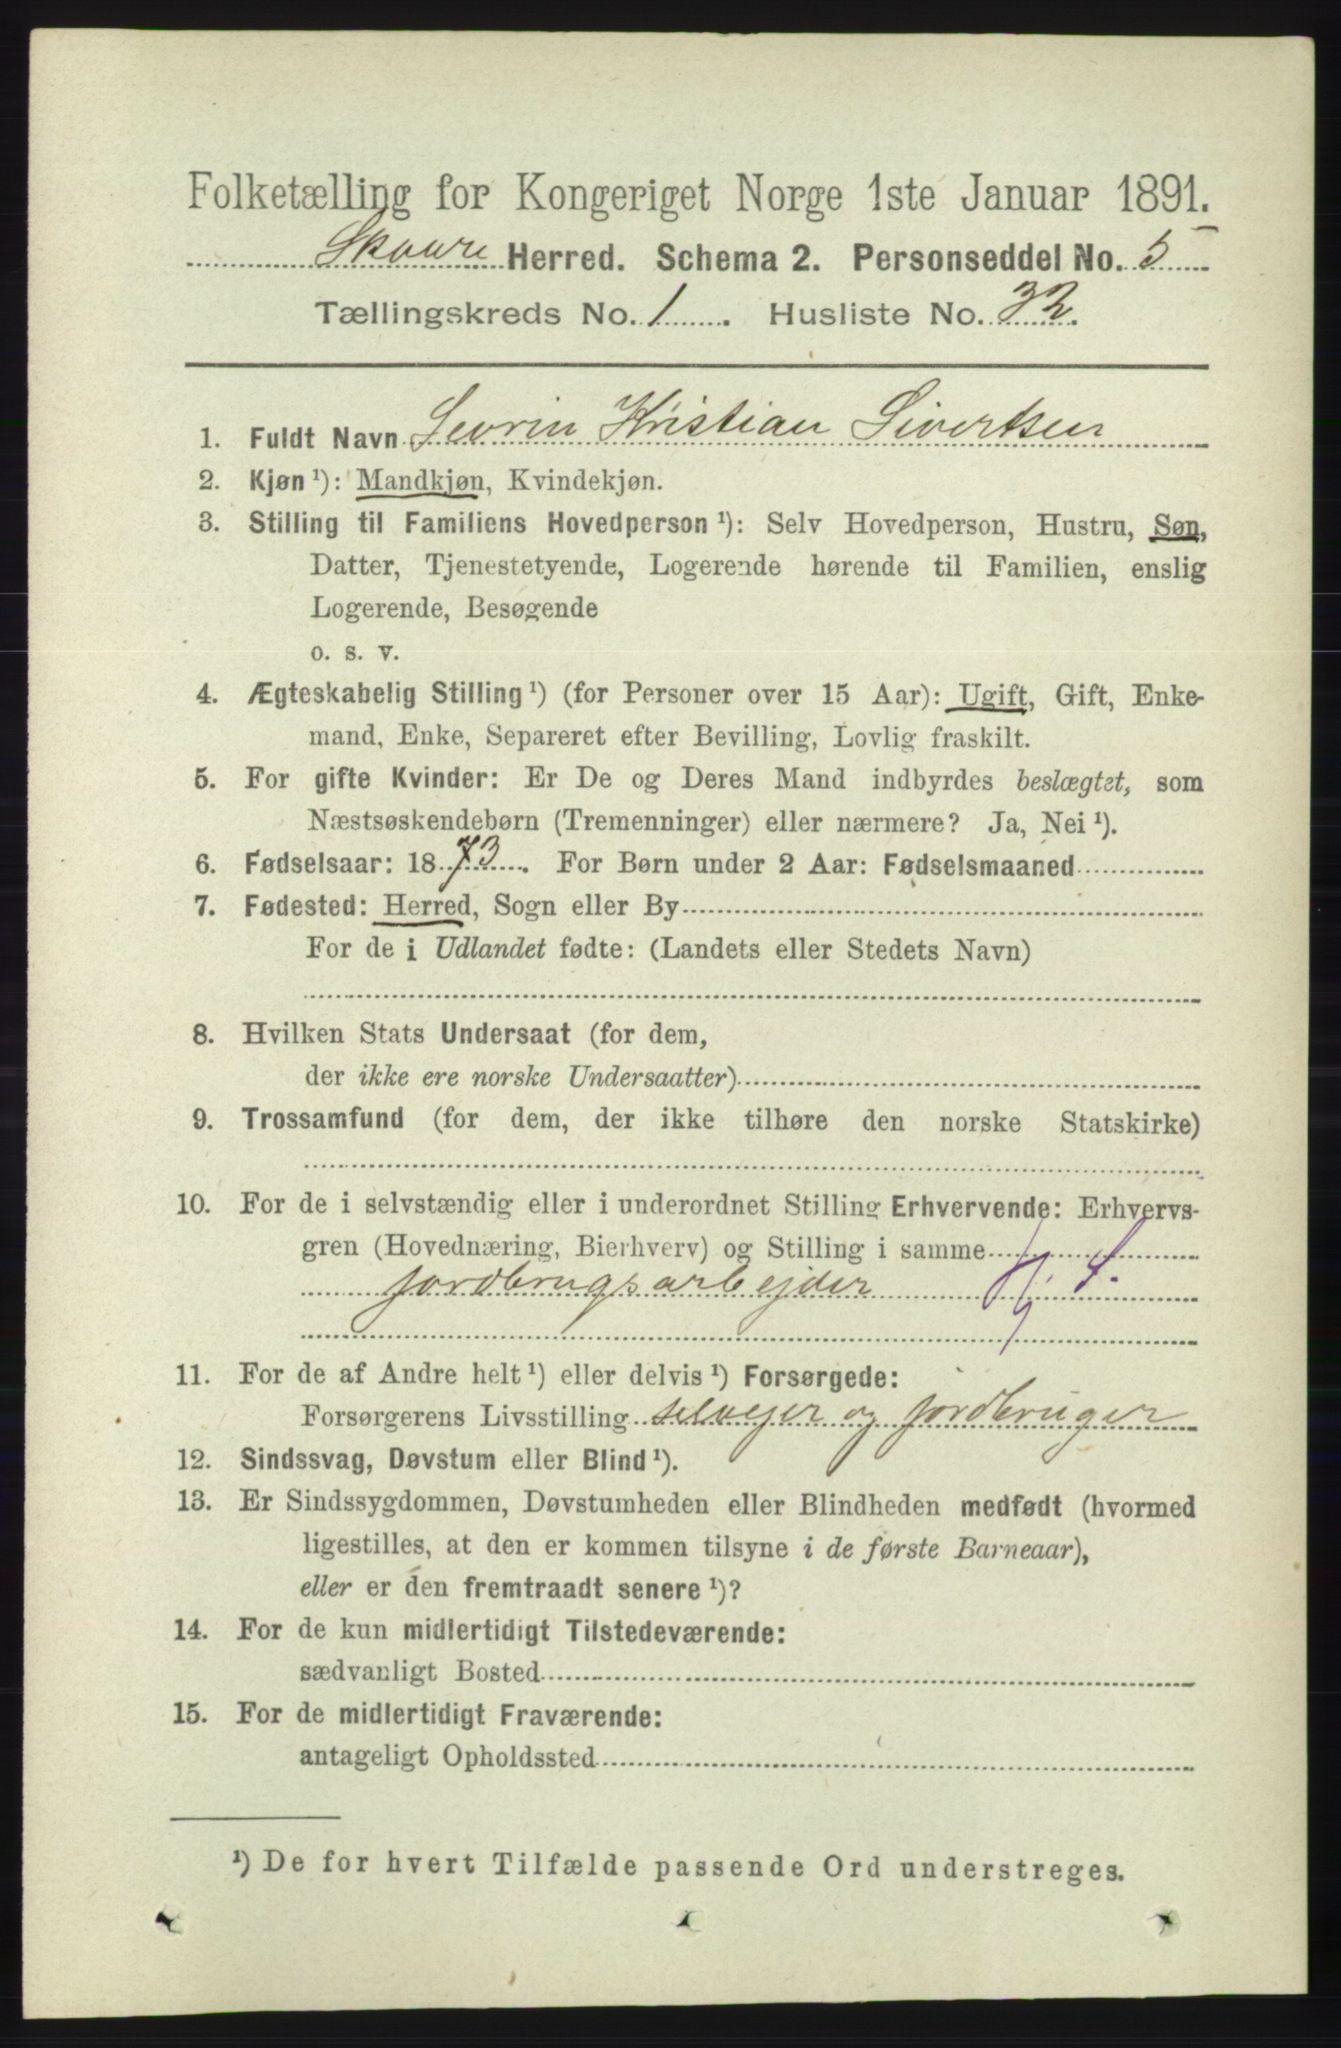 Folketælling for Kongeriget Norge 1ste Januar 1891.
Skaare Herred. Schema 2. Personseddel No. 5
Tællingskreds No. 1. Husliste No. 32.
1. Fuldt Navn Sevrin Kristian Sivertsen
2. Kjøn ¹): Mandkjøn, Kvindekjøn.
3. Stilling til Familiens Hovedperson ¹): Selv Hovedperson, Hustru, Søn,
Datter, Tjenestetyende, Logerende hørende til Familien, enslig
Logerende, Besøgende
o. s. v.
4. Ægteskabelig Stilling ¹) (for Personer over 15 Aar): Ugift, Gift, Enke-
mand, Enke, Separeret efter Bevilling, Lovlig fraskilt.
5. For gifte Kvinder: Er De og Deres Mand indbyrdes beslægtet, som
Næstsøskendebørn (Tremenninger) eller nærmere? Ja, Nei ¹).
6. Fødselsaar: 1873. For Børn under 2 Aar: Fødselsmaaned
7. Fødested: Herred, Sogn eller By
For de i Udlandet fødte: (Landets eller Stedets Navn)
8. Hvilken Stats Undersaat (for dem,
der ikke ere norske Undersaatter)
9. Trossamfund (for dem, der ikke tilhøre den norske Statskirke)
10. For de i selvstændig eller i underordnet Stilling Erhvervende: Erhvervs-
gren (Hovednæring, Bierhverv) og Stilling i samme
jordbrugsarbejder
11. For de af Andre helt ¹) eller delvis ¹) Forsørgede:
Forsørgerens Livsstilling selvejer og jordbruger
12. Sindssvag, Døvstum eller Blind ¹).
13. Er Sindssygdommen, Døvstumheden eller Blindheden medfødt (hvormed
ligestilles, at den er kommen tilsyne i de første Barneaar),
eller er den fremtraadt senere ¹)?
14. For de kun midlertidigt Tilstedeværende:
sædvanligt Bosted
15. For de midlertidigt Fraværende:
antageligt Opholdssted
¹) De for hvert Tilfælde passende Ord understreges.